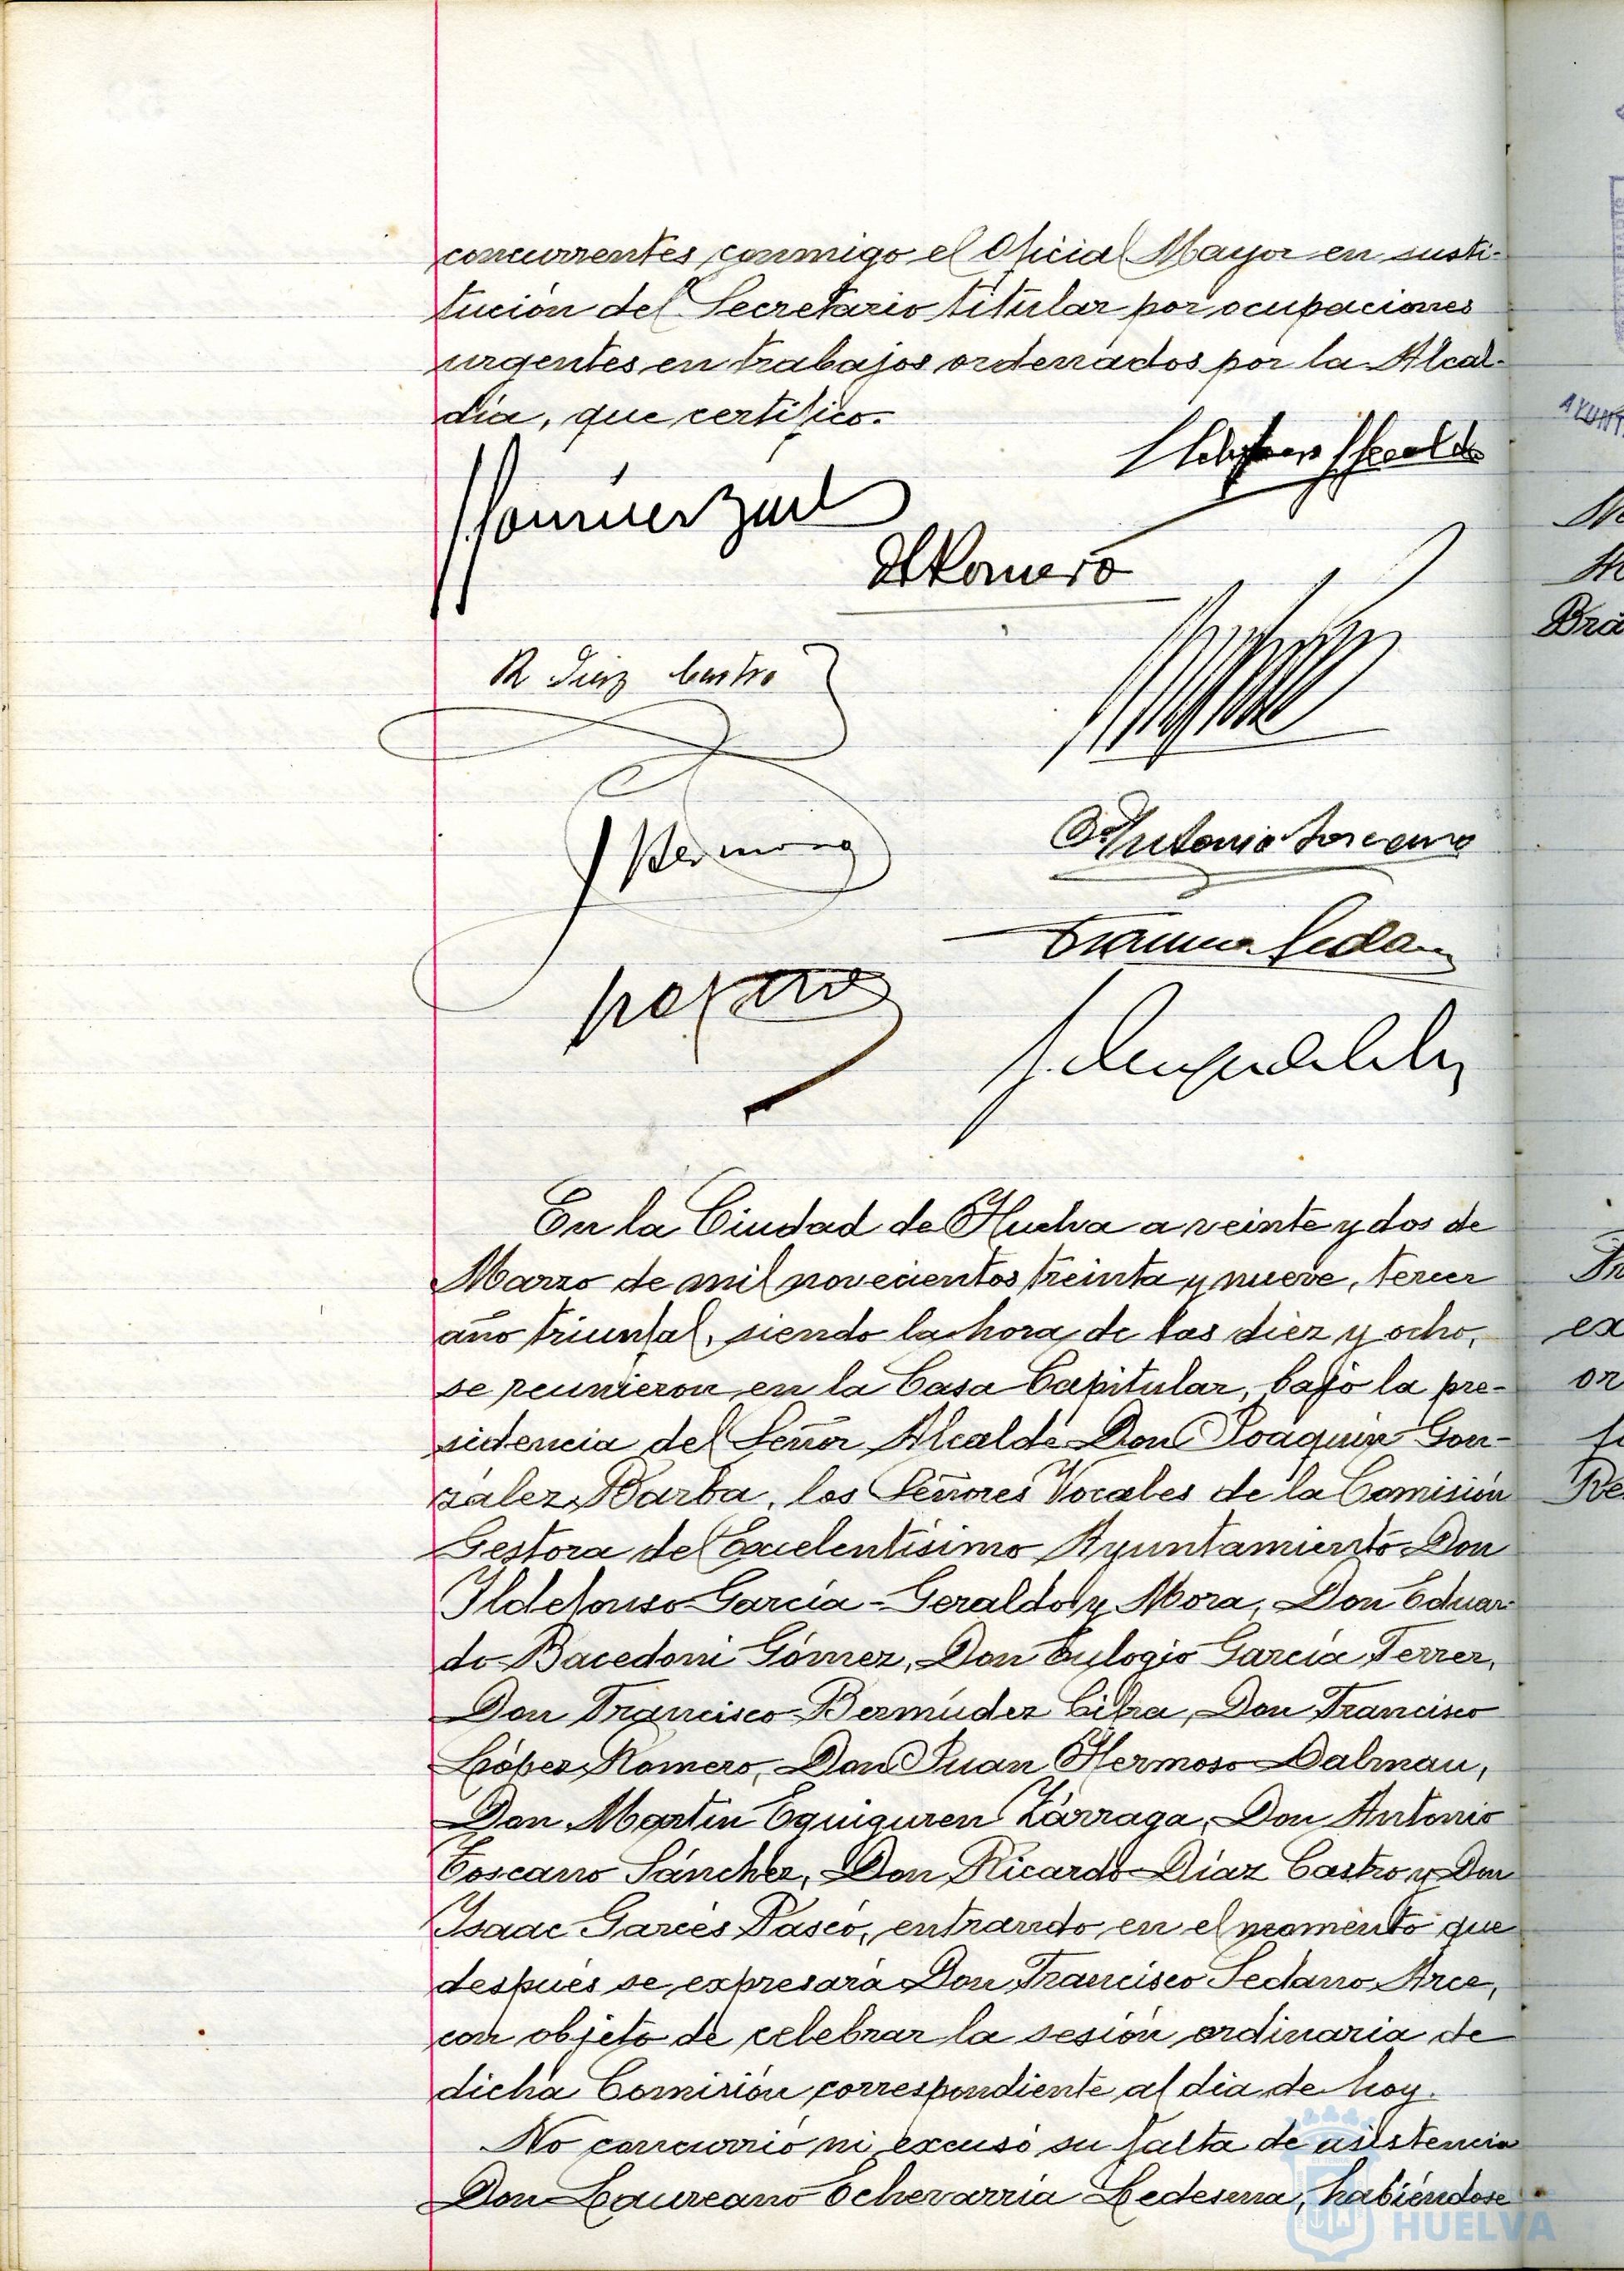 concurrentes conmigo el Oficial Mayor en susti-
tución del Secretario titular por ocupaciones
urgentes en trabajos ordenados por la Alcal-
día, que certifico.
R Díaz Castro
Antonio Toscano
En la Ciudad de Huelva a veinte y dos de
Marzo de mil novecientos treinta y nueve, tercer
año triunfal, siendo la hora de las diez y ocho,
se reunieron en la Casa Capitular, bajo la pre-
sidencia del Señor Alcalde Don Joaquín Gon-
zález Barba, los Señores Vocales de la Comisión
Gestora del Excelentísimo Ayuntamiento Don
Ildefonso García-Geraldo y Mora, Don Eduar-
do Bacedoni Gómez, Don Eulogio García Ferrer,
Don Francisco Bermúdez Cifra, Don Francisco
López Romero, Don Juan Hermoso Dalmau,
Don Martín Eguiguren Zárraga, Don Antonio
Toscano Sánchez, Don Ricardo Díaz Castro y Don
Isaac Garcés Pascó, entrando en el momento que
después se expresará Don Francisco Sedano Arce,
con objeto de celebrar la sesión ordinaria de
dicha Comisión correspondiente al día de hoy.
No concurrió ni excusó su falta de asistencia
Don Laureano Echevarría Ledesma, habiéndose
HUELVA